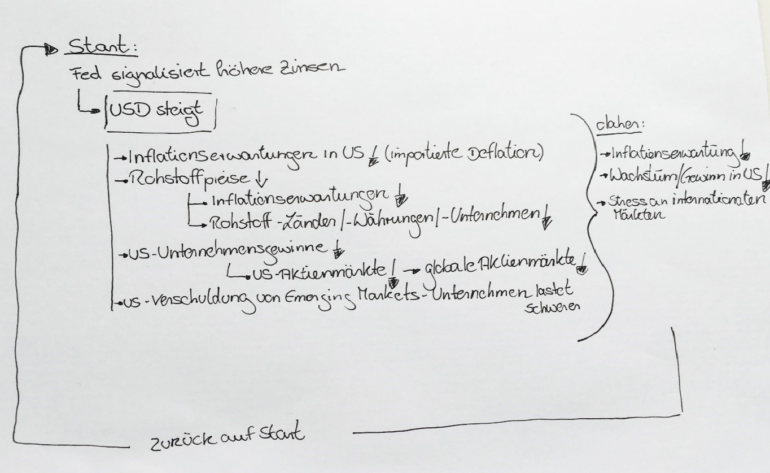 Start:
Fed signalisiert höhere Zinsen
USD steigt
→Inflationserwartungen in US ↓ (importierte Deflation)
→Rohstoffpreise ↓
→Inflationserwartungen ↓
→Rohstoff-Länder/-Währungen/-Unternehmen ↓
→US-Unternehmensgewinne ↓
→US-Aktienmärkte ↓ → globale Aktienmärkte ↓
→US-Verschuldung von Emerging Markets-Unternehmen lastet
schwerer
daher:
→Inflationserwartung ↓
→Wachstum/Gewinn in US ↓
→Stress an internationalen
Märkten
zurück auf Start